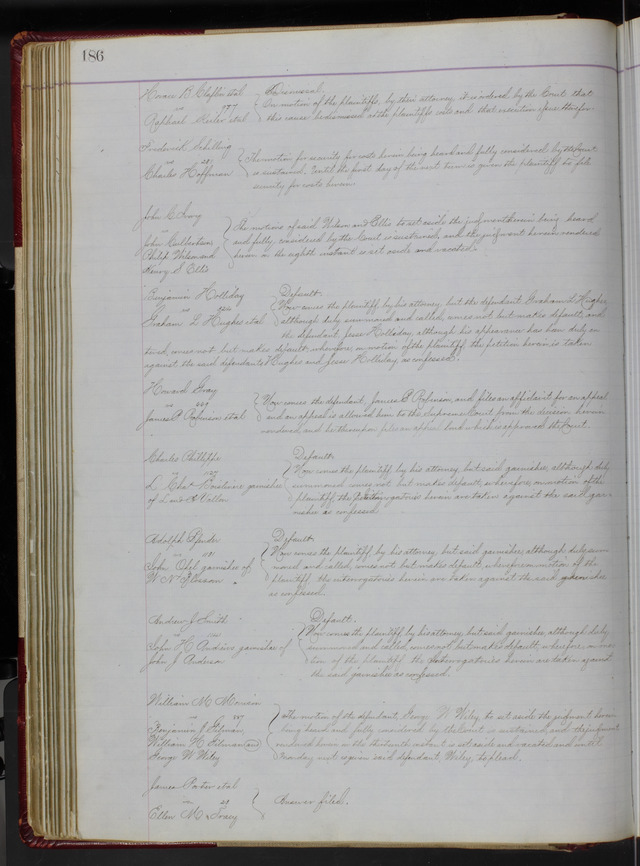 186
Horace B Claflin et al
vs 177
Raphael Keiler et al
Dismissal.
On motion of the plaintiffs, by their attorney it is ordered by the Court that
this cause be dismissed at the plaintiffs costs and that execution issue therefor.
Frederick Schilling
vs
Charles Hoffman
The motion for security for costs herein being heard and fully considered by the Court
is sustained. Until the first day of the next term is given the plaintiff to file
security for costs herein
John C
vs
John Culbertson
Philip Nelson and
Henry S Ellis
The motions of said Nelson and Ellis to set aside the judgment herein being heard
and fully considered by the Court is sustained, and the judgment herein rendered
herein on the eighth instant is set aside and vacated.
Benjamin Holliday
vs
Graham L Hughes et al
Default.
Now comes the plaintiff by his attorney, but the defendant Graham L Hughes
although duly summoned and called, comes not but makes default, and
the defendant, Jesse Holliday although his appearance has been duly en
tered, comes not, but makes default, wherefore, on motion of the plaintiff, the petition herein is taken
against the said defendants Hughes and Jesse Holliday as confessed.
Howard Gray
vs
James P Robinson et al
Now comes the defendant, James P Robinson, and files an affidavit for an appeal
and an appeal is allowed him to the Supreme Court from the decision herein
rendered and he thereupon files an appeal bond which is approved by the Court.
Charles Phillips
vs
L Chas garnishee
of
Default.
Now comes the plaintiff by his attorney, but said garnishee, although duly
summoned comes not but makes default, wherefore, on motion of the
plaintiff the interrogatories herein are taken against the said gar-
nishee as confessed.
Adolph
vs
John Obel garnishee of
W N
Default.
Now comes the plaintiff by his attorney, but said garnishee, although duly sum
moned and called, comes not but makes default, wherefore on motion of the
plaintiff the interrogatories herein are taken against the said garnishee
as confessed.
Andrew J Smith
vs
John H garnishee of
John J Anderson
Default.
Now comes the plaintiff, by his attorney, but said garnishee, although duly
summoned and called, comes not but makes default, wherefore, on mo
tion of the plaintiff the interrogatories herein are taken against
the said garnishee as confessed.
William M
vs
Benjamin J Gilman,
William H Gilman and
George W Wiley
The motion of the defendant, George W Wiley to set aside the judgment herein
being heard and fully considered by the Court is sustained, and the judgment
rendered herein on the thirteenth instant is set aside and vacated and until
Monday next is given said defendant, Wiley, to plead.
James Porter et al
vs 29
Ellen M Tracy
Answer filed.